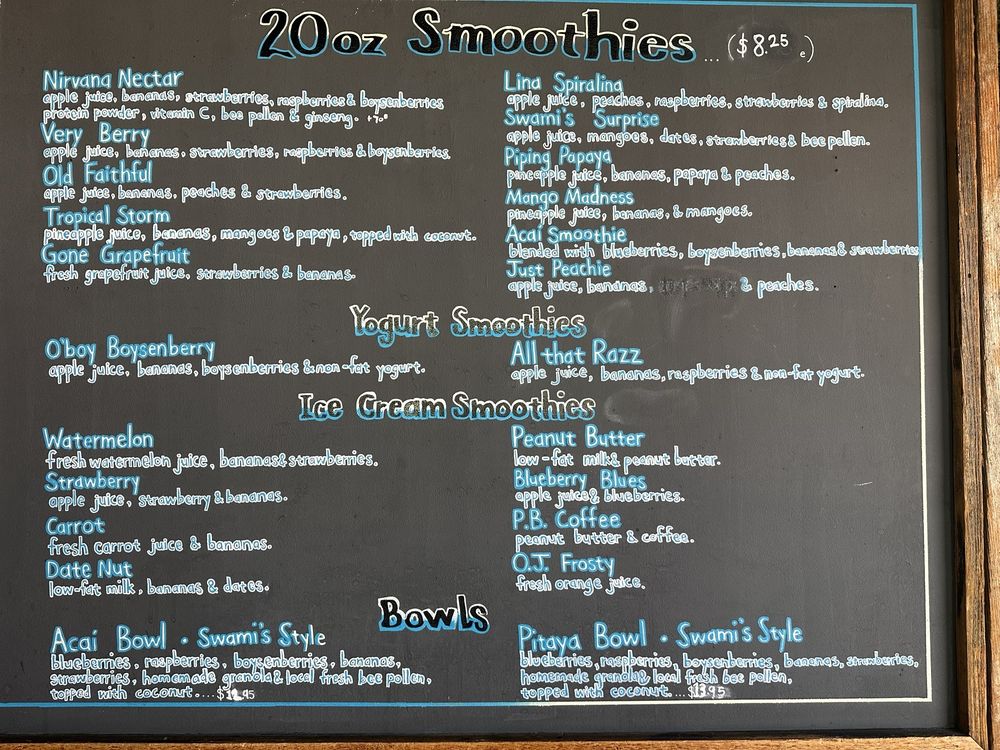 20oz Smoothies ... ($8.25 )
Nirvana Nectar
apple juice, bananas, strawberries, raspberries & boysenberries
protein powder, vitamin C, bee pollen & ginseng.
Very Berry
apple juice, bananas, strawberries, raspberries & boysenberries.
Old Faithful
apple juice, bananas, peaches & strawberries.
Tropical Storm
pineapple juice, bananas, mangoes & papaya, topped with coconut.
Gone Grapefruit
fresh grapefruit juice, strawberries & bananas.
Lina Spiralina
apple juice, peaches, raspberries, strawberries & spiralina.
Swami's Surprise
apple juice, mangoes, dates, strawberries & bee pollen.
Piping Papaya
pineapple juice, bananas, papaya & peaches.
Mango Madness
pineapple juice, bananas, & mangoes.
Acai Smoothie
blended with blueberries, boysenberries, bananas & strawberries
Just Peachie
apple juice, bananas, & peaches.
Yogurt Smoothies
O'boy Boysenberry
apple juice, bananas, boysenberries & non-fat yogurt.
All that Razz
apple juice, bananas, raspberries & non-fat yogurt.
Ice Cream Smoothies
Watermelon
fresh watermelon juice, bananas & strawberries.
Strawberry
apple juice, strawberry & bananas.
Carrot
fresh carrot juice & bananas.
Date Nut
low-fat milk, bananas & dates.
Peanut Butter
low-fat milk & peanut butter.
Blueberry Blues
apple juice & blueberries.
P.B. Coffee
peanut butter & coffee.
O.J. Frosty
fresh orange juice.
Bowls
Acai Bowl • Swami's Style
blueberries, raspberries, boysenberries, bananas,
strawberries, homemade granola & local fresh bee pollen,
topped with coconut....
Pitaya Bowl • Swami's Style
blueberries, raspberries, boysenberries, bananas, strawberries,
homemade granola & local fresh bee pollen,
topped with coconut...$13.95